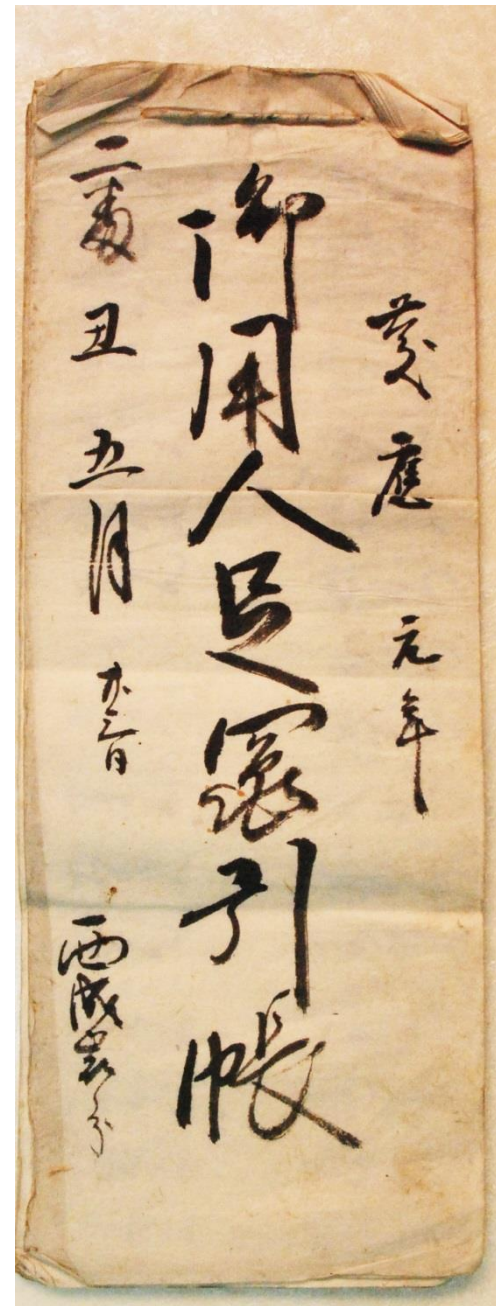 慶應 元年
御用人足引帳
二番 丑 五月 廿三日 西